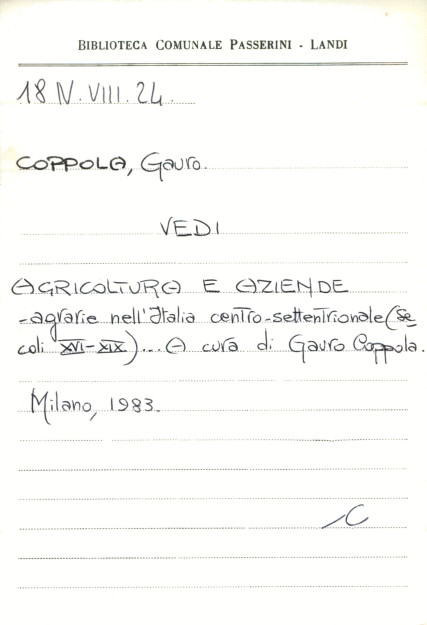 BIBLIOTECA COMUNALE PASSERINI - LANDI
18 IV. VIII. 24.
COPPOLA, Gauro.
VEDI
AGRICOLTURA E AZIENDE
-agrarie nell'Italia centro-settentrionale (Se
coli XVI-XIX)... A cura di Gauro Coppola.
Milano, 1983.